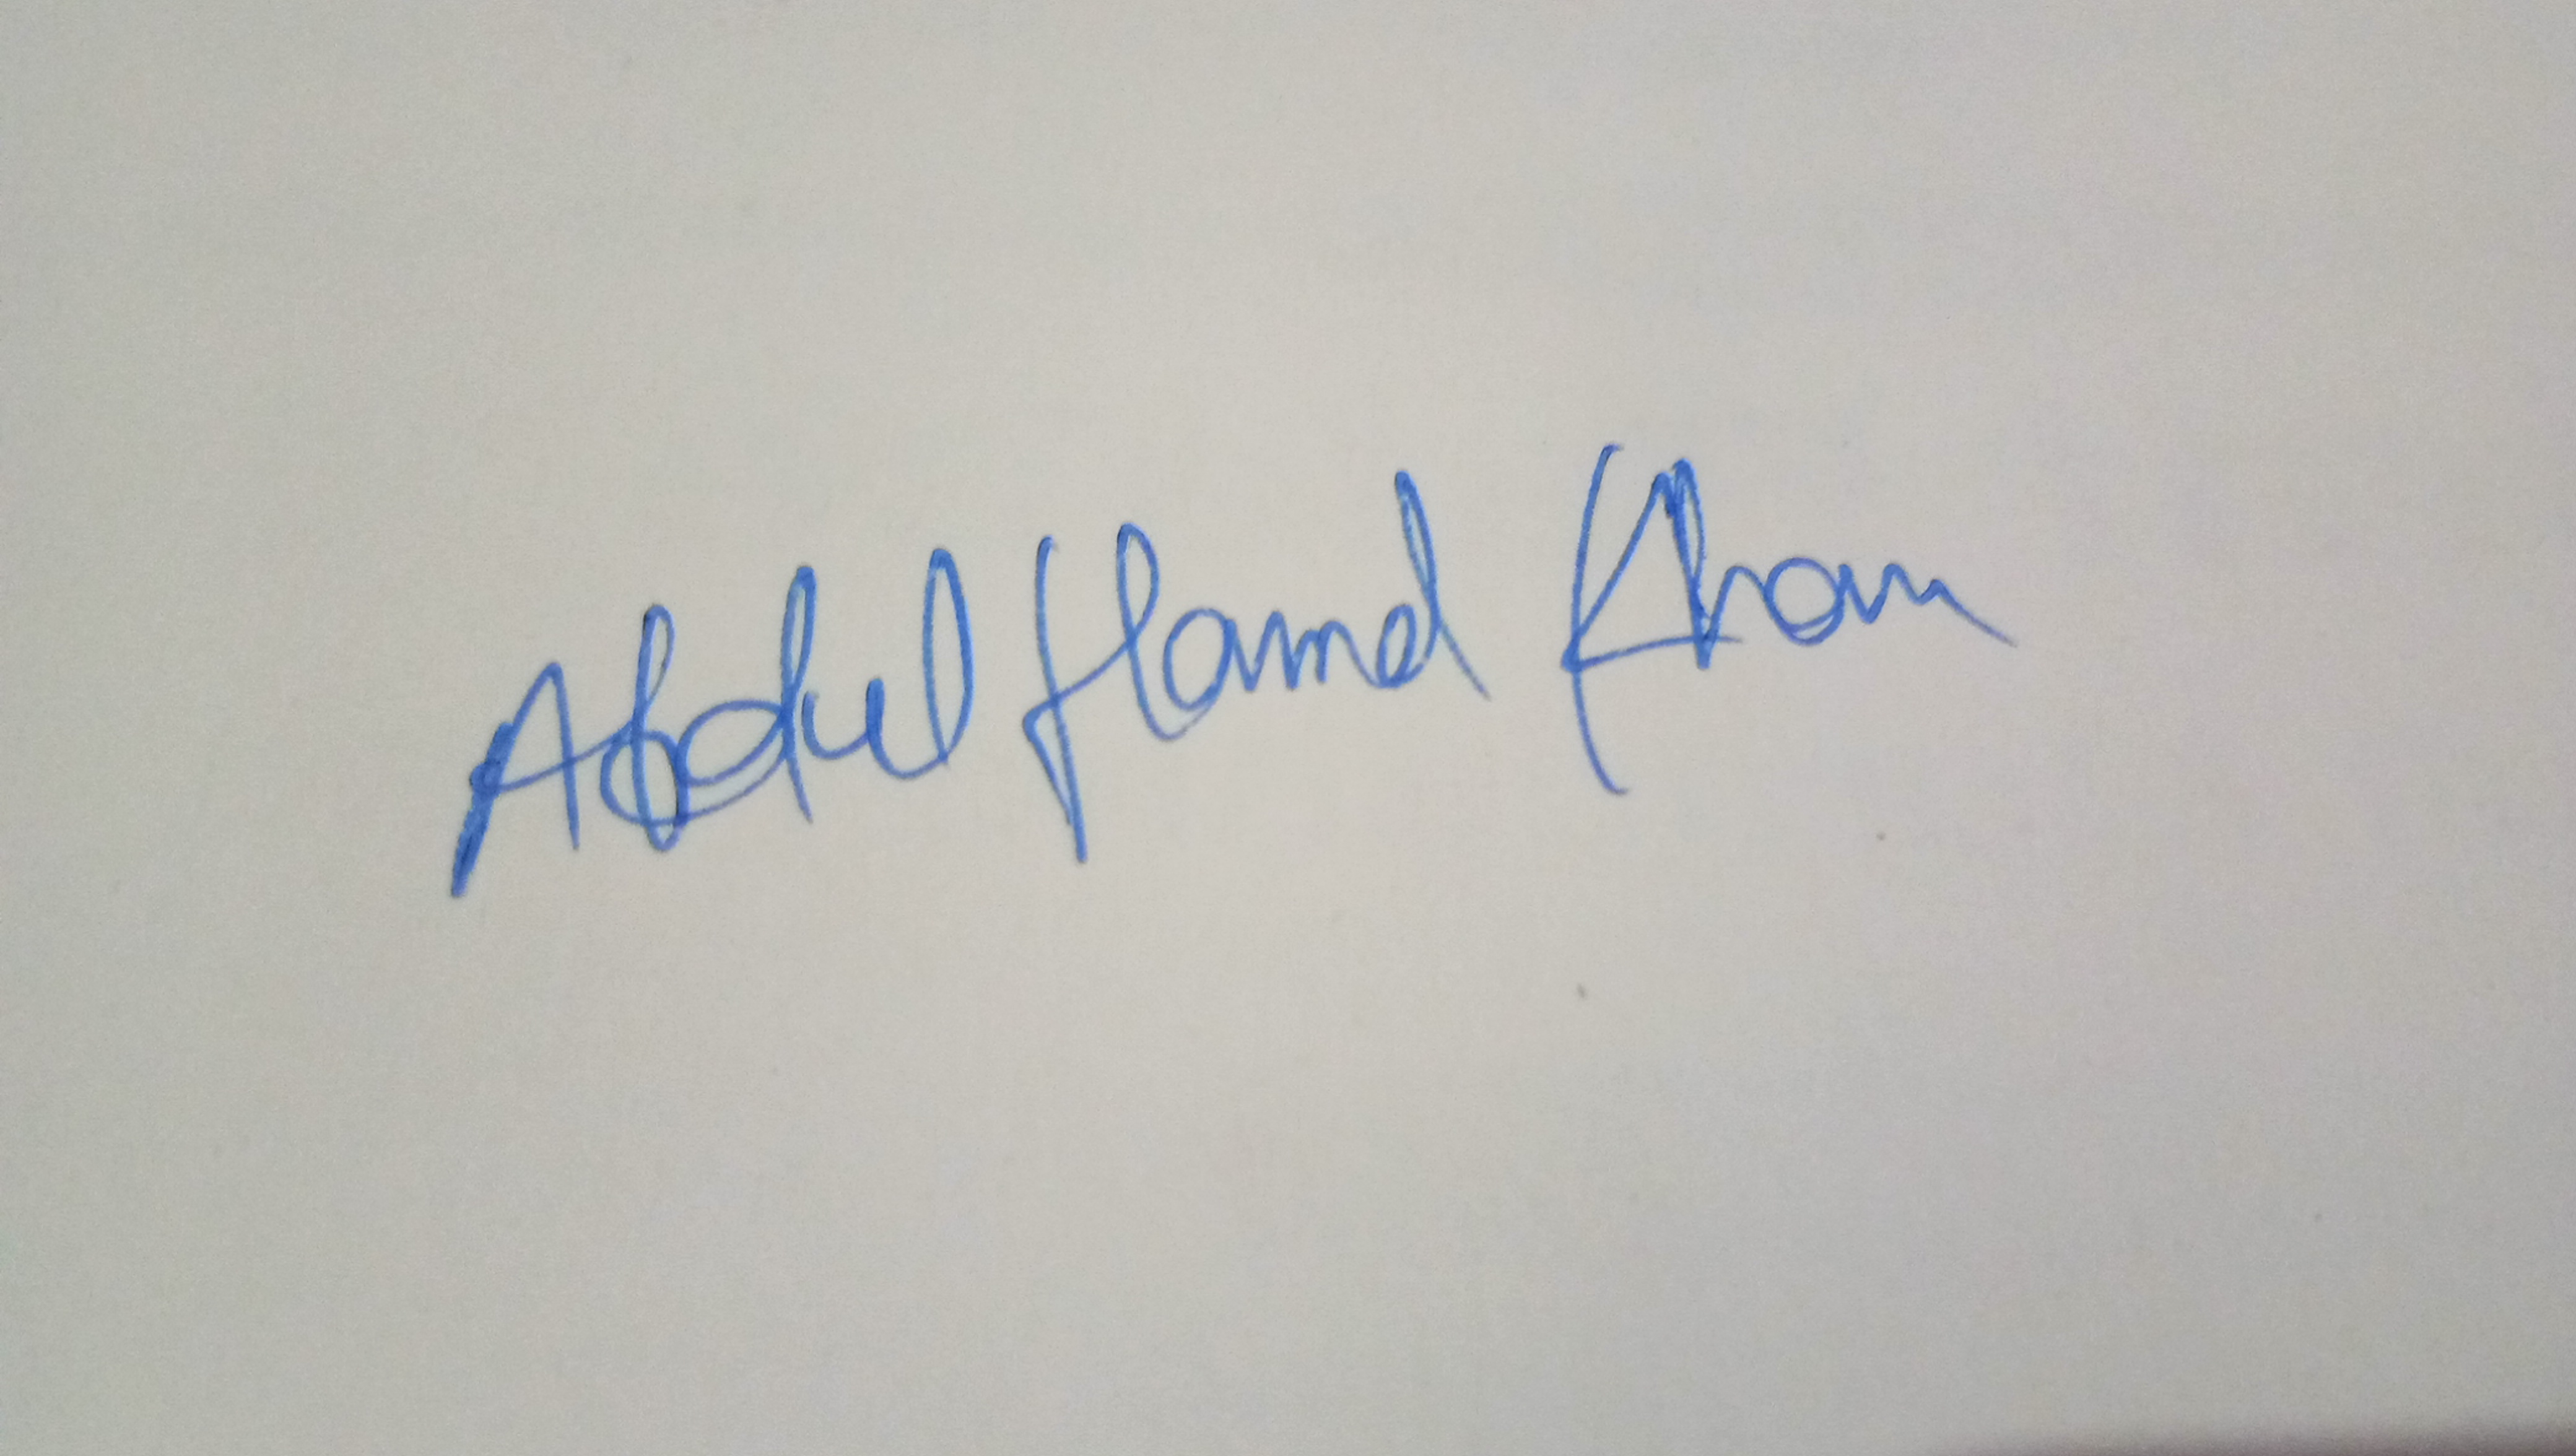 Abdul Hamid Khan